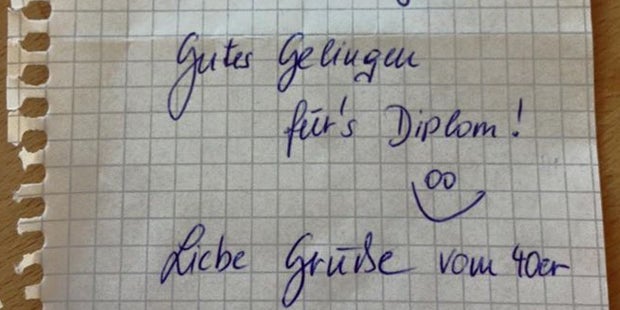 Gutes Gelingen
für's Diplom!
Liebe Grüße vom 40er